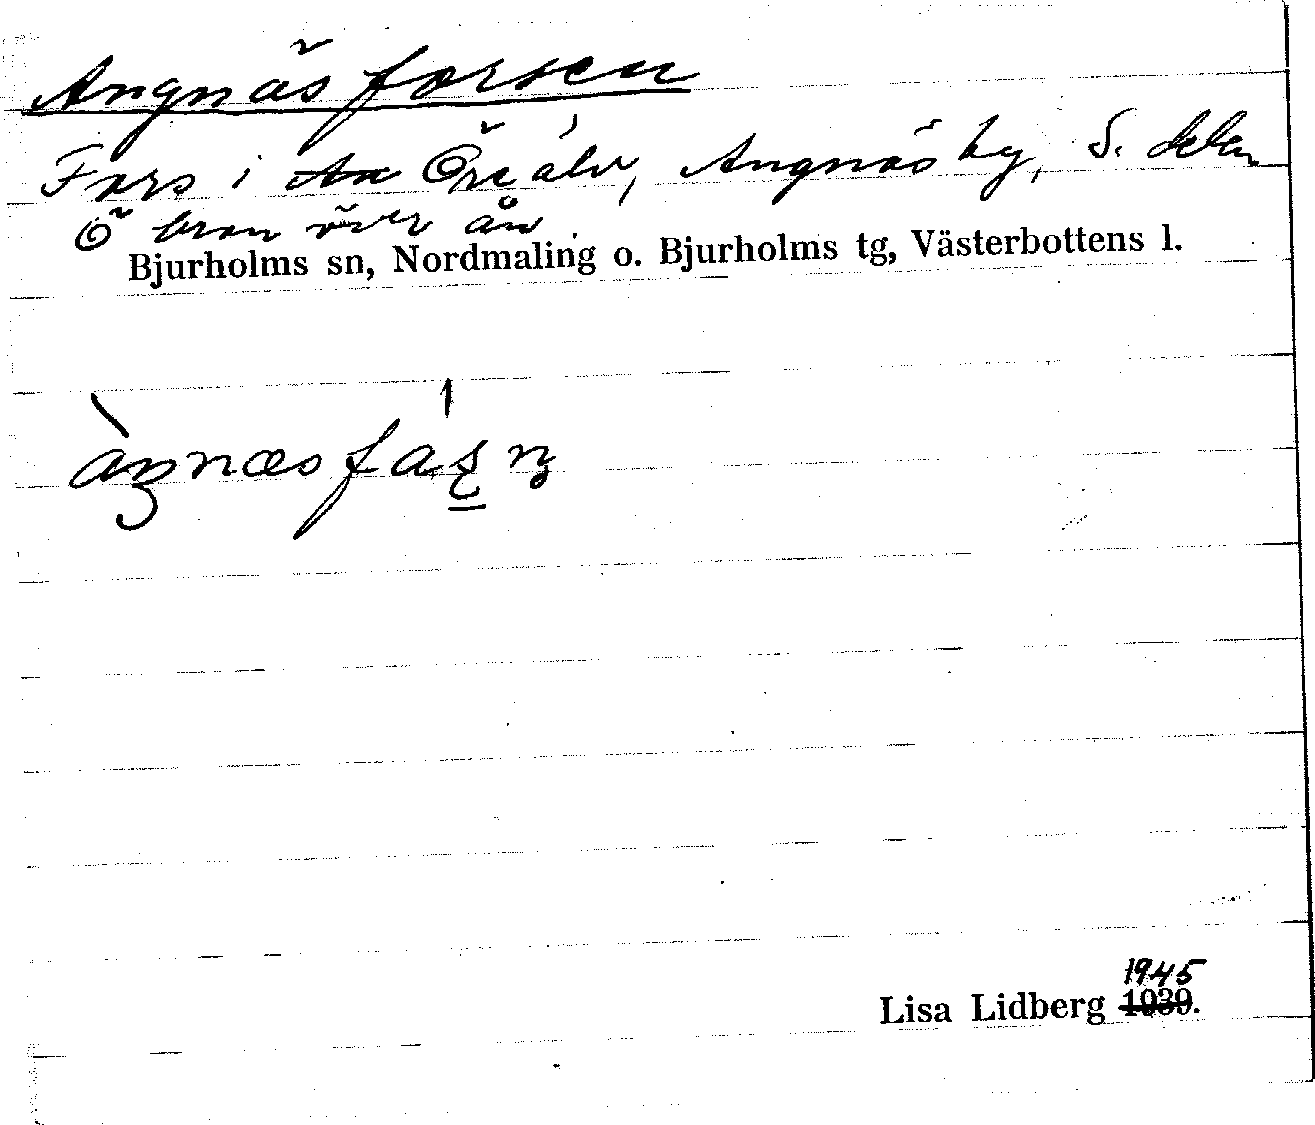 Angnäsforsen
Fors i Öre älv, Angnäs by, S. delen
Ö bron över ån.
Bjurholms sn, Nordmaling o. Bjurholms tg, Västerbottens l.
àŋnæsfáʂṇ
1945
Lisa Lidberg 1939.